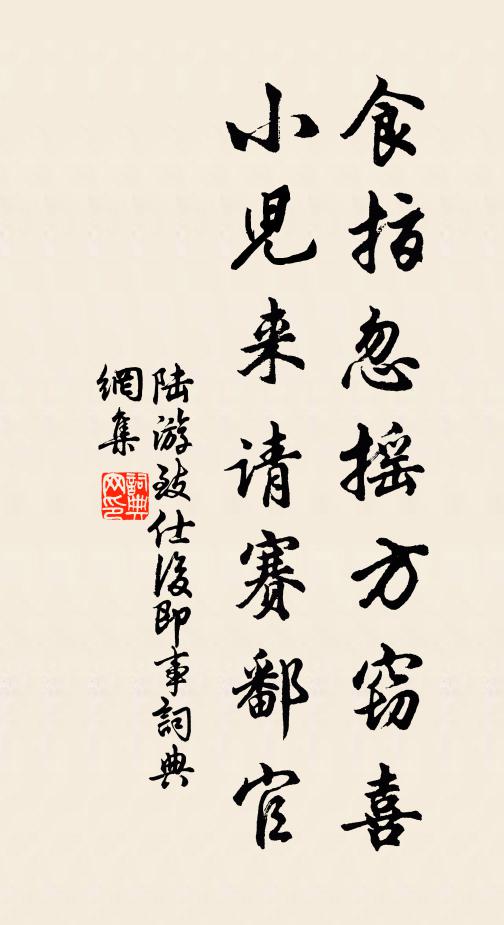 食指忽摇方窃喜
小児来请赛鄱官
陆游致仕後即事詞典
網集
詞典
网印